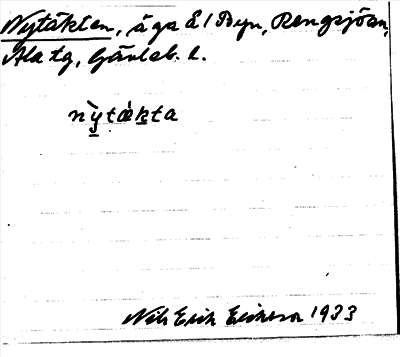 Nytäkten, äga å 1 Byn, Rengsjöan,
Ala tg, Gävleb. l.
nỳtækta
Nils Erik Eriksson 1933